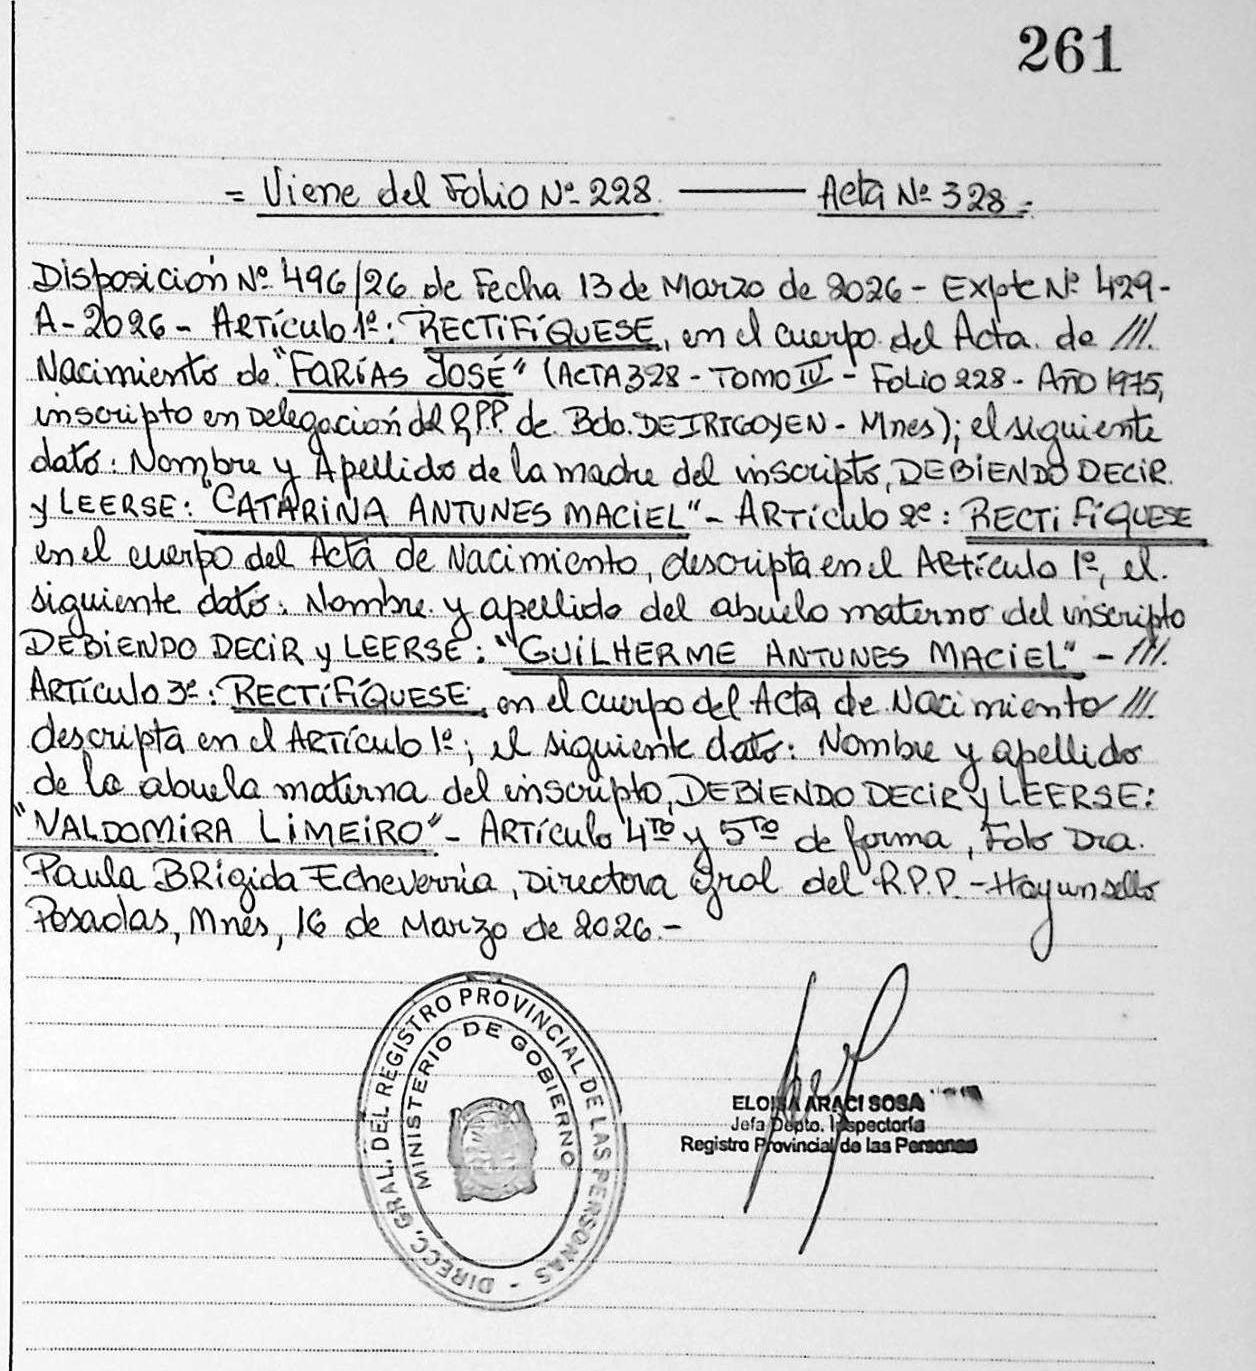 261
= Viene del Folio Nº 228. ——— Acta Nº 328 =
Disposición Nº 496/26 de Fecha 13 de Marzo de 2026 - Expte Nº 429-
A-2026 - Artículo 1º: RECTIFÍQUESE, en el cuerpo del Acta de ///.
Nacimiento de "FARÍAS JOSÉ" (ACTA 328 - TOMO IV - Folio 228 - Año 1975,
inscripto en Delegación del R.P.P. de Bdo. DE IRIGOYEN - Mnes); el siguiente
dato: Nombre y Apellido de la madre del inscripto, DEBIENDO DECIR
y LEERSE: "CATARINA ANTUNES MACIEL" - ARTículo 2º: RECTIFÍQUESE
en el cuerpo del Acta de Nacimiento, descripta en el Artículo 1º, el.
siguiente dato: Nombre y apellido del abuelo materno del inscripto
DEBIENDO DECIR y LEERSE: "GUILHERME ANTUNES MACIEL" - ///.
ARTículo 3º: RECTIFÍQUESE, en el cuerpo del Acta de Nacimiento ///.
descripta en el ARTículo 1º; el siguiente dato: Nombre y apellido
de la abuela materna del inscripto, DEBIENDO DECIR y LEERSE:
"VALDOMIRA LIMEIRO" - ARTículo 4TO y 5TO de forma, Fdo Dra.
Paula BRígida Echeverria, Directora Gral del R.P.P. - Hay un sello
Posadas, Mnes, 16 de Marzo de 2026.-
DIRECC. GRAL. DEL REGISTRO PROVINCIAL DE LAS PERSONAS -
MINISTERIO DE GOBIERNO
ELOISA ARACI SOSA
Jefa Depto. Inspectoría
Registro Provincial de las Personas